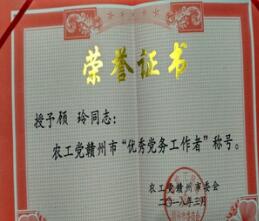 荣誉证书
授予顾 玲同志:
农工党赣州市“优秀党务工作者”称号。
农工党赣州市委会
二〇一八年三月